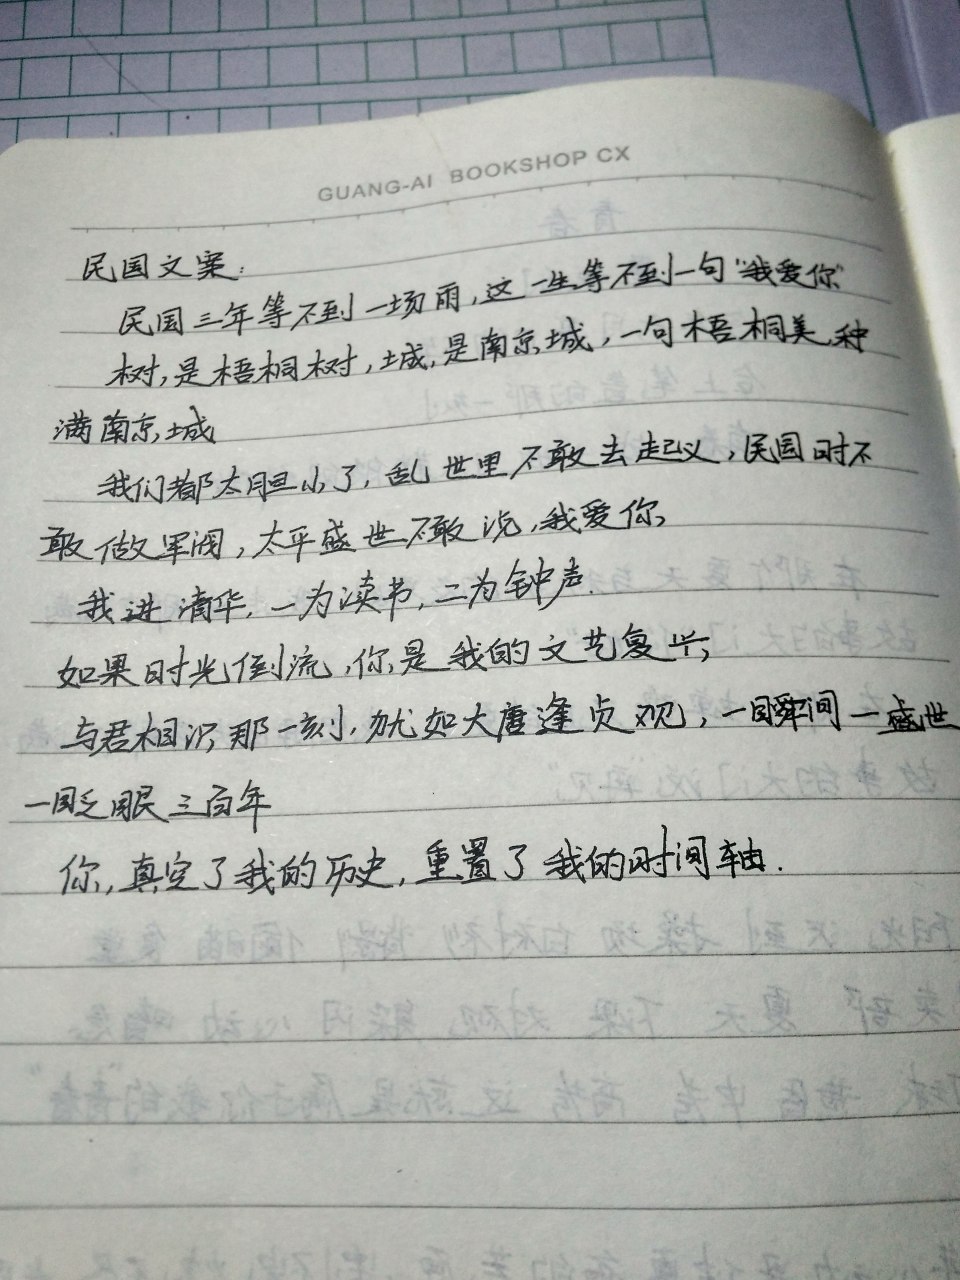 GUANG-AI BOOKSHOP CX
民国文案:
民国三年等不到一场雨,这一生等不到一句“我爱你”
树,是梧桐树,城,是南京城,一句梧桐美,种
满南京城
我们都太胆小了,乱世里不敢去起义,民国时不
敢做军阀,太平盛世不敢说,我爱你,
我进清华,一为读书,二为钟声.
如果时光倒流,你,是我的文艺复兴,
与君相识那一刻,犹如大唐逢贞观,一瞬间一盛世
一眨眼三百年
你,真定了我的历史,重置了我的时间轴.